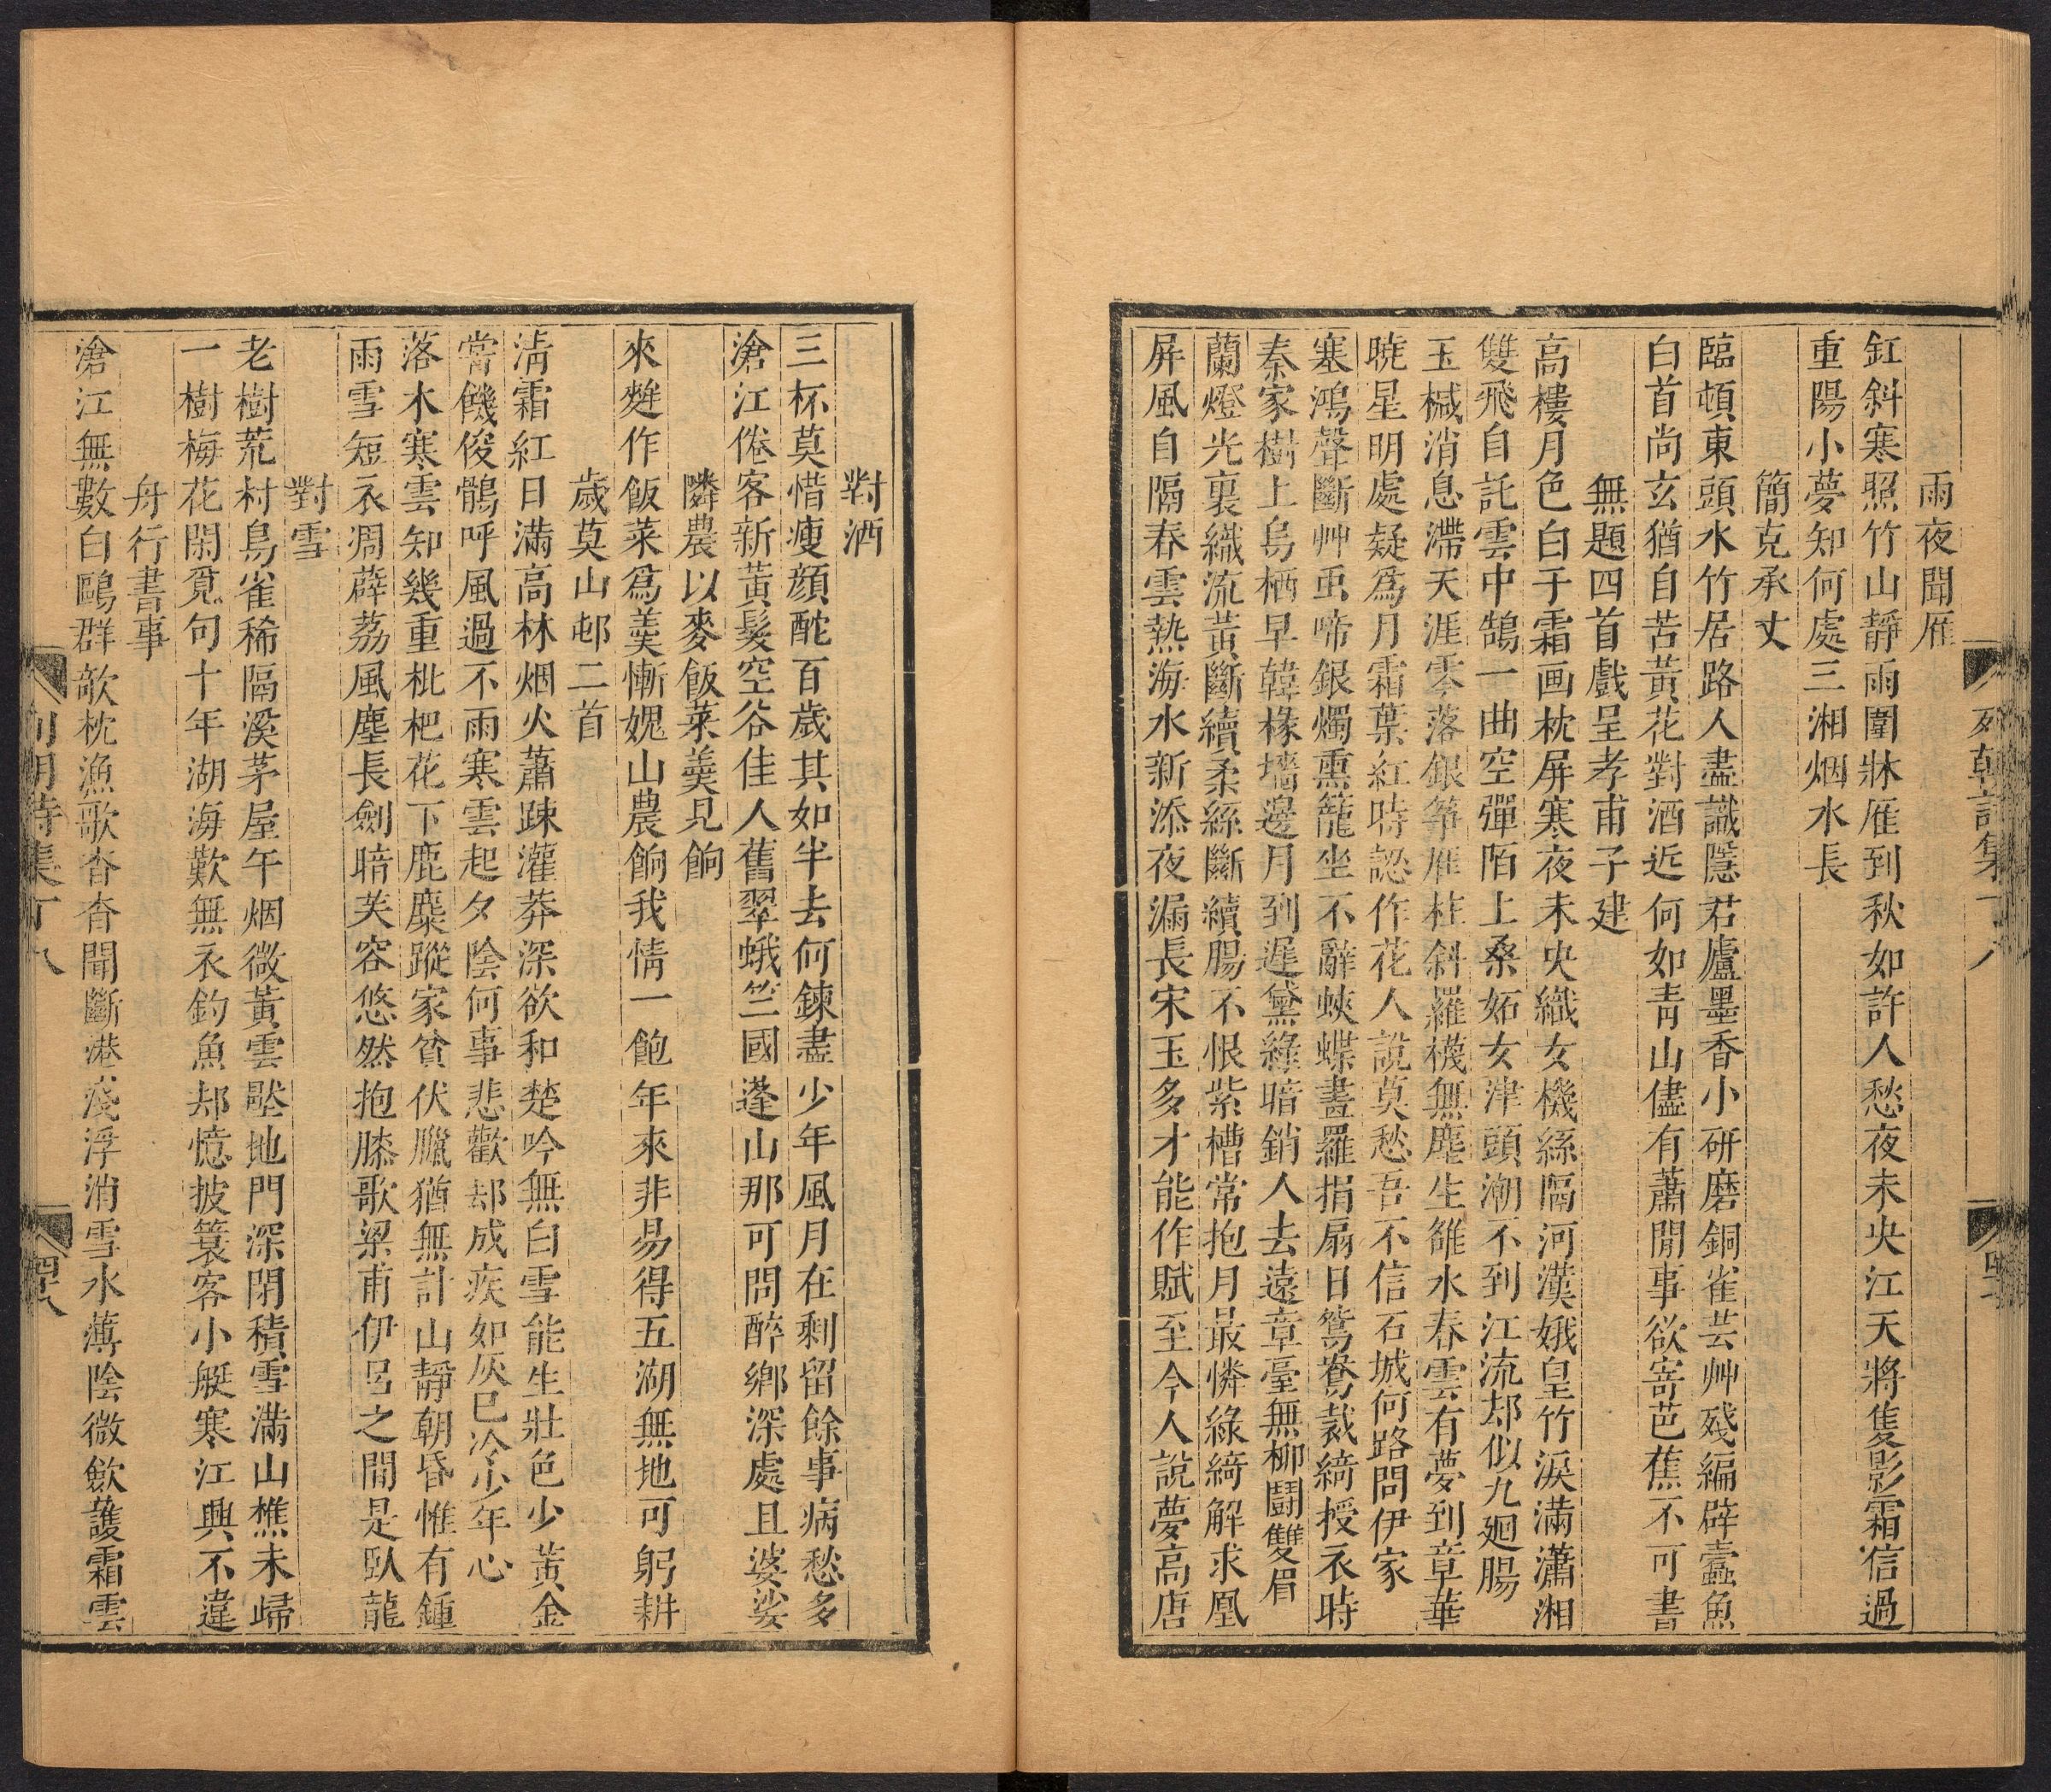 雨夜聞雁
釭斜寒照竹山靜雨圍牀雁到秋如許人愁夜未央江天將隻影霜信過
重陽小夢知何處三湘烟水長
簡克承丈
臨頓東頭水竹居路人盡識隱君廬墨香小研磨銅雀芸艸殘編辟蠹魚
白首尚玄猶自苦黃花對酒近何如青山儘有蕭閒事欲寄芭蕉不可書
無題四首戲呈孝甫子建
高樓月色白于霜画枕屏寒夜未央織女機絲隔河漢娥皇竹淚滿瀟湘
雙飛自託雲中鵠一曲空彈陌上桑妬女津頭潮不到江流却似九廻腸
玉椷消息滯天涯零落銀箏雁柱斜羅襪無塵生雒水春雲有夢到章華
曉星明處疑爲月霜葉紅時認作花人說莫愁吾不信石城何路問伊家
塞鴻聲斷艸虫啼銀燭熏籠坐不辭蛺蝶畫羅捐扇日鴛鴦裁綺授衣時
秦家樹上烏栖早韓椽墻邊月到遲黛綠暗銷人去遠章臺無柳鬪雙眉
蘭燈光裏織流黃斷續柔絲斷續腸不恨紫槽常抱月最憐綠綺解求凰
屏風自隔春雲熱海水新添夜漏長宋玉多才能作賦至今人說夢高唐
對酒
三杯莫惜瘦顏酡百歲其如半去何鍊盡少年風月在剩留餘事病愁多
滄江倦客新黃髮空谷佳人舊翠蛾竺國蓬山那可問醉鄉深處且婆娑
隣農以麥飯菜羹見餉
來麰作飯菜爲羹慚媿山農餉我情一飽年來非易得五湖無地可躬耕
歲莫山邨二首
清霜紅日滿高林烟火蕭踈灌莽深欲和楚吟無白雪能生壯色少黃金
當饑俊鶻呼風過不雨寒雲起夕陰何事悲歡却成疾如灰已冷少年心
落木寒雲知幾重枇杷花下鹿麋蹤家貧伏臘猶無計山靜朝昏惟有鍾
雨雪短衣凋薜荔風塵長劍暗芙容悠然抱膝歌梁甫伊呂之間是臥龍
對雪
老樹荒村鳥雀稀隔溪茅屋午烟微黃雲壓地門深閉積雪滿山樵未歸
一樹梅花閑覓句十年湖海歎無衣釣魚却憶披簑客小艇寒江興不違
舟行書事
滄江無數白鷗群欹枕漁歌杳杳聞斷港淺浮消雪水薄陰微歛護霜雲